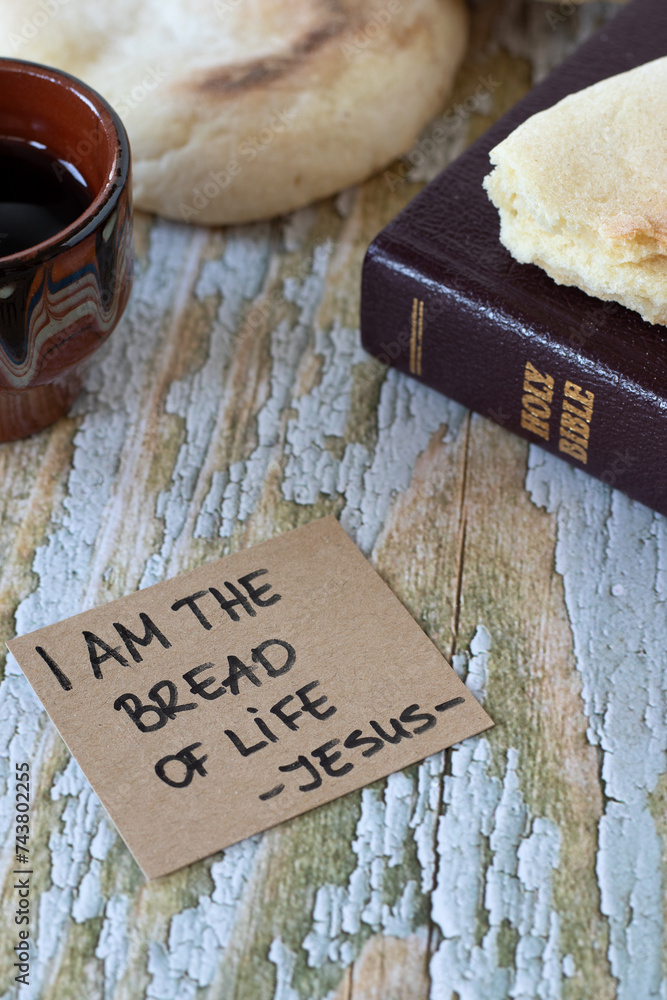 HOLY
BIBLE
I AM THE
BREAD
OF LIFE
-JESUS-
Adobe Stock | #743802255